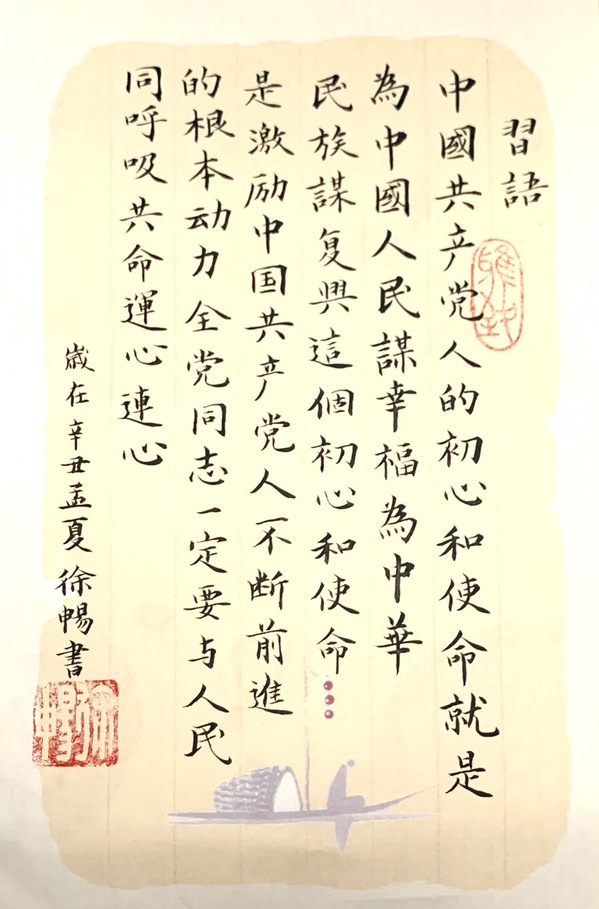 習語
中國共产党人的初心和使命就是
為中國人民謀幸福為中華
民族謀复興這個初心和使命
是激励中国共产党人不断前進
的根本动力全党同志一定要与人民
同呼吸共命運心連心
歲在辛丑孟夏徐暢書
徐暢